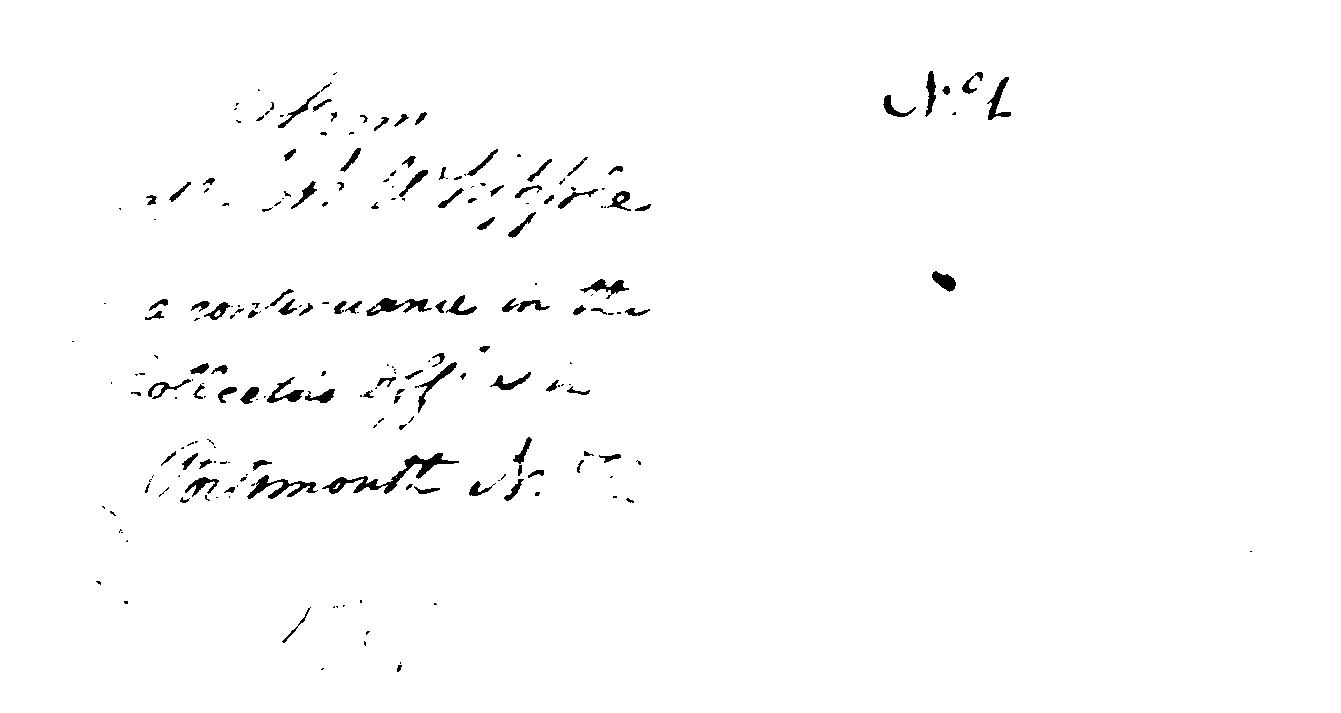 From
Whipple
a continuance in the
Collectors Office in
Portsmouth N.
No 1